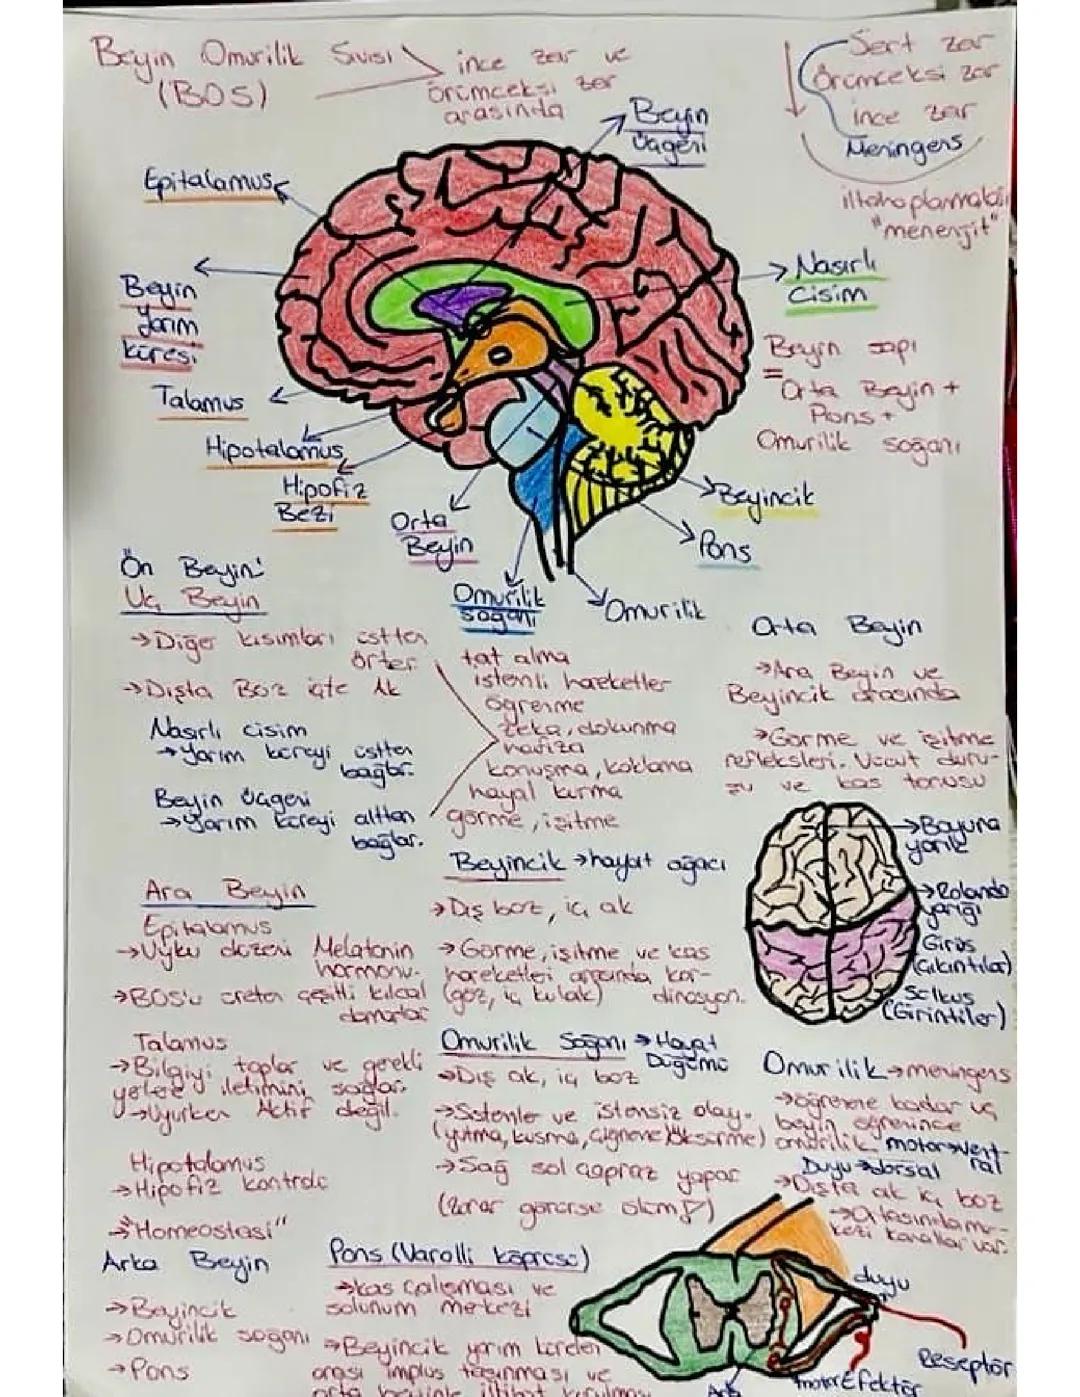 Beyin Omurilik Sıvısı
(BOS)
ince zar ve
örümceksi zar
arasında
Sert zar
Örümceksi zar
ince zar
Meningens
iltihaplanmaları
"menenjit"
Beyin
Üçgeni
Epitalamus
Nasırlı
Cisim
Beyin
Yarım
küresi
Talamus
Hipotalamus
Hipofiz
Bezi
Beyin sapı
=
Orta Beyin +
Pons +
Omurilik soğanı
Orta
Beyin
Beyincik
Pons
Omurilik
soğanı
Omurilik
Ön Beyin:
Uç Beyin
→Diğer kısımları üstten
örter
→Dışta Boz içte Ak
Nasırlı cisim
→Yarım küreyi üstten
bağlar.
Beyin Üçgeni
→Yarım küreyi alttan
bağlar.
tat alma
istemli hareketler
öğrenme
zeka, dokunma
hafıza
konuşma, koklama
hayal kurma
görme, işitme
Orta Beyin
→Ara Beyin ve
Beyincik arasında
→Görme ve işitme
refleksleri. Vücut duru-
şu ve kas tonusu
→Boyuna
yarık
→Rolando
yarığı
Girus
(Çıkıntılar)
Sulkus
(Girintiler)
Ara Beyin
Epitalamus
→Uyku düzeni Melatonin
hormonu.
→BOS'u üreten çeşitli kılcal
damarlar
Talamus
→Bilgiyi toplar ve gerekli
yerlere iletimini sağlar.
→Uyurken Aktif değil.
Hipotalamus
→Hipofiz kontrolü
→"Homeostasi"
Beyincik →hayat ağacı
→Dış boz, iç ak
→Görme, işitme ve kas
hareketleri arasında kor-
(göz, iç kulak) dinasyon.
Omurilik Soğanı →Hayat
Düğümü
→Dış ak, iç boz
→Sistemler ve istemsiz olay.
(yutma, kusma, çiğneme, öksürme)
→Sağ sol çapraz yapar
(Zarar görürse ölüm)
Omurilik→meningens
→öğrenene kadar uç
beyin öğrenince
omurilik motor→vent-
ral
Duyu→dorsal
→Dışta ak iç boz
→Ortasında mer-
kezi kanallar var.
Arka Beyin
→Beyincik
→Omurilik soğanı
→Pons
Pons (Varolli köprüsü)
→kas çalışması ve
solunum merkezi
→Beyincik yarım küreleri
arası implus taşınması ve
orta beyinle irtibat kurulması
duyu
Reseptör
motor Efektör
Ara